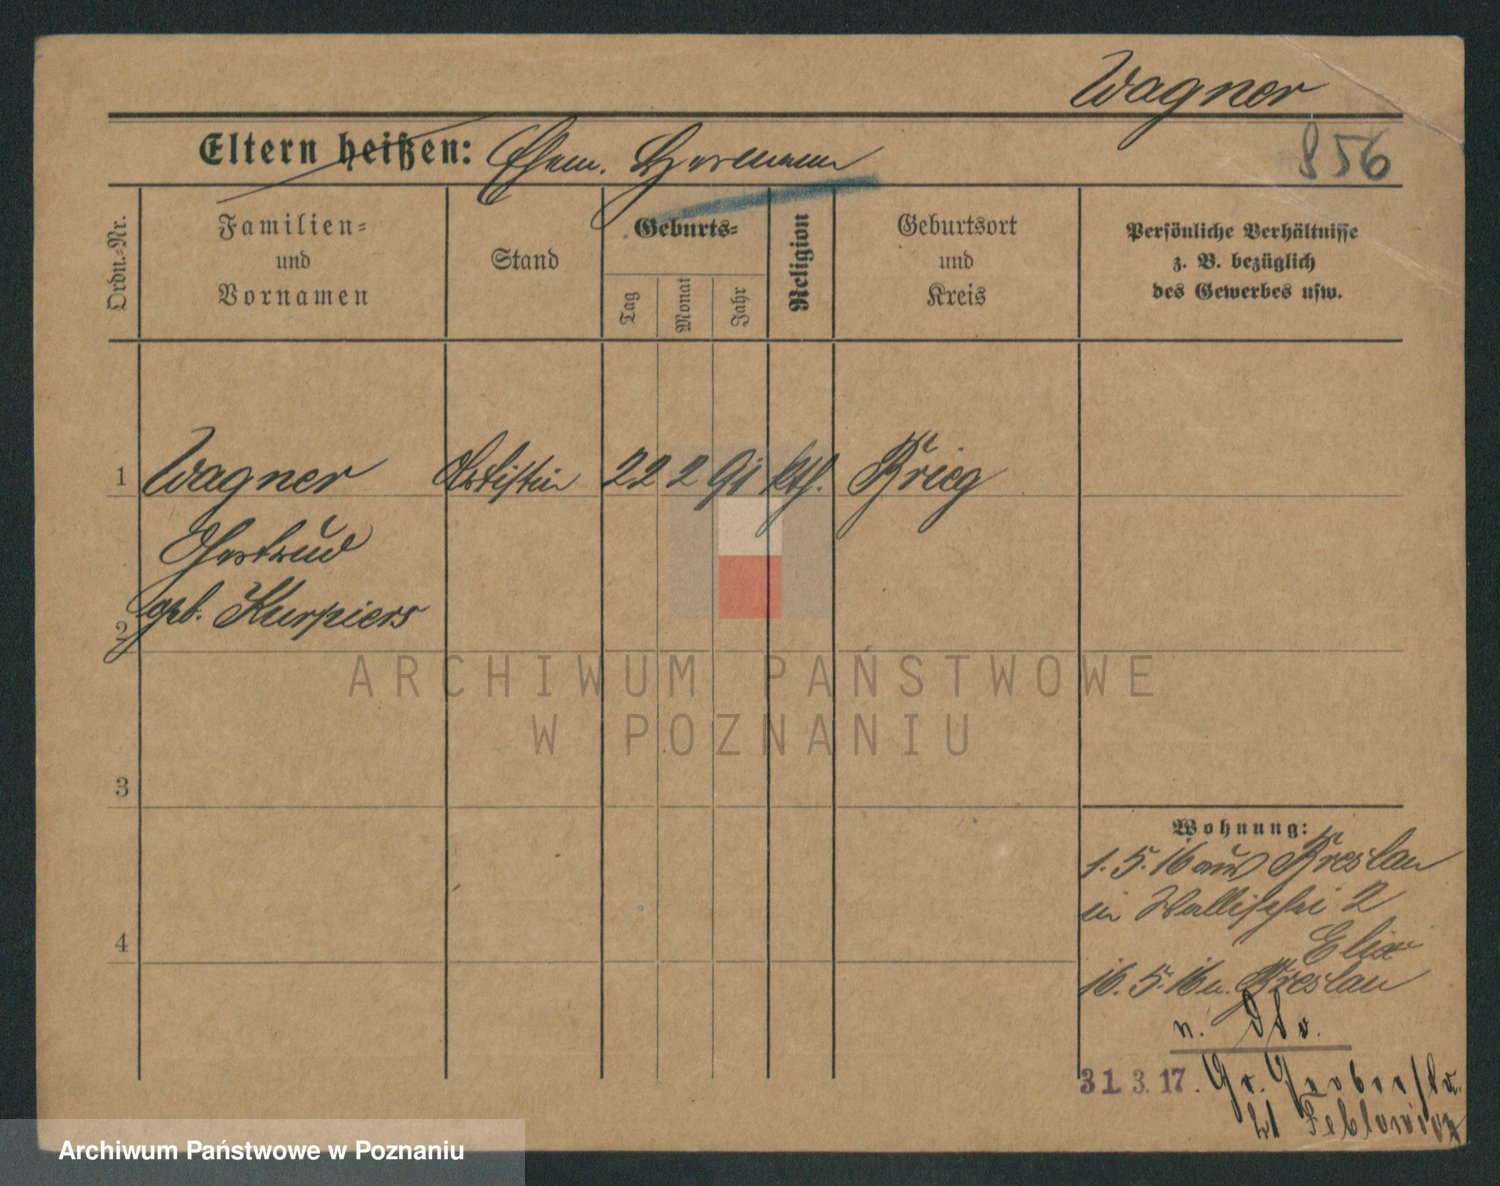 Wagner
856
Eltern heißen: Ehem. Hermann
Ordn.=Nr.
Familien=
und
Vornamen
Stand
Geburts=
Tag
Monat
Jahr
Religion
Geburtsort
und
Kreis
Persönliche Verhältnisse
z. B. bezüglich
des Gewerbes usw.
1 Wagner Artistin 22 2 91 kth. Brieg
Gertrud
2 geb. Kurpiers
ARCHIWUM PAŃSTWOWE
W POZNANIU
3
4
Wohnung:
1. 5. 16 aus Breslau
in Wallischei 2
16. 5. 16 n. Breslau
n.
31. 3. 17. Gr. Gerberstr.
Archiwum Państwowe w Poznaniu